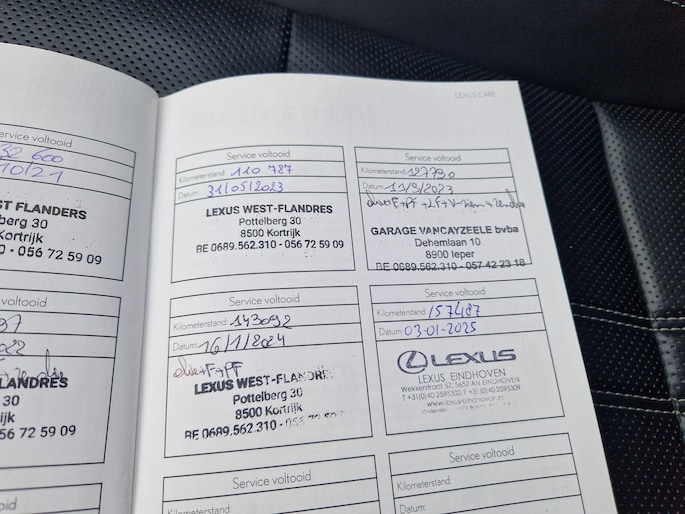 ervice voltooid
32 600
10/21
ST FLANDERS
berg 30
Kortrijk
0 - 056 72 59 09
LANDRES
g 30
ijk
56 72 59 09
oid
LEXUS CARE
Service voltooid
Kilometerstand: 110 787
Datum: 31/05/2023
LEXUS WEST-FLANDRES
Pottelberg 30
8500 Kortrijk
BE 0689.562.310 - 056 72 59 09
Service voltooid
Kilometerstand: 127790
Datum: 11/9/2023
GARAGE VANCAYZEELE bvba
Dehemlaan 10
8900 Ieper
BE 0689.562.310 - 057 42 23 18
Service voltooid
Kilometerstand: 143092
Datum: 16/1/2024
LEXUS WEST-FLANDRE
Pottelberg 30
8500 Kortrijk
BE 0689.562.310 - 056 72 59
Service voltooid
Kilometerstand: 157487
Datum: 03-01-2025
LEXUS
LEXUS EINDHOVEN
Wekkerstraat 57, 5652 AN EINDHOVEN
www.lexus-eindhoven.nl
Service voltooid
Kilometerstand:
Datum:
Service voltooid
Kilometerstand:
Datum: